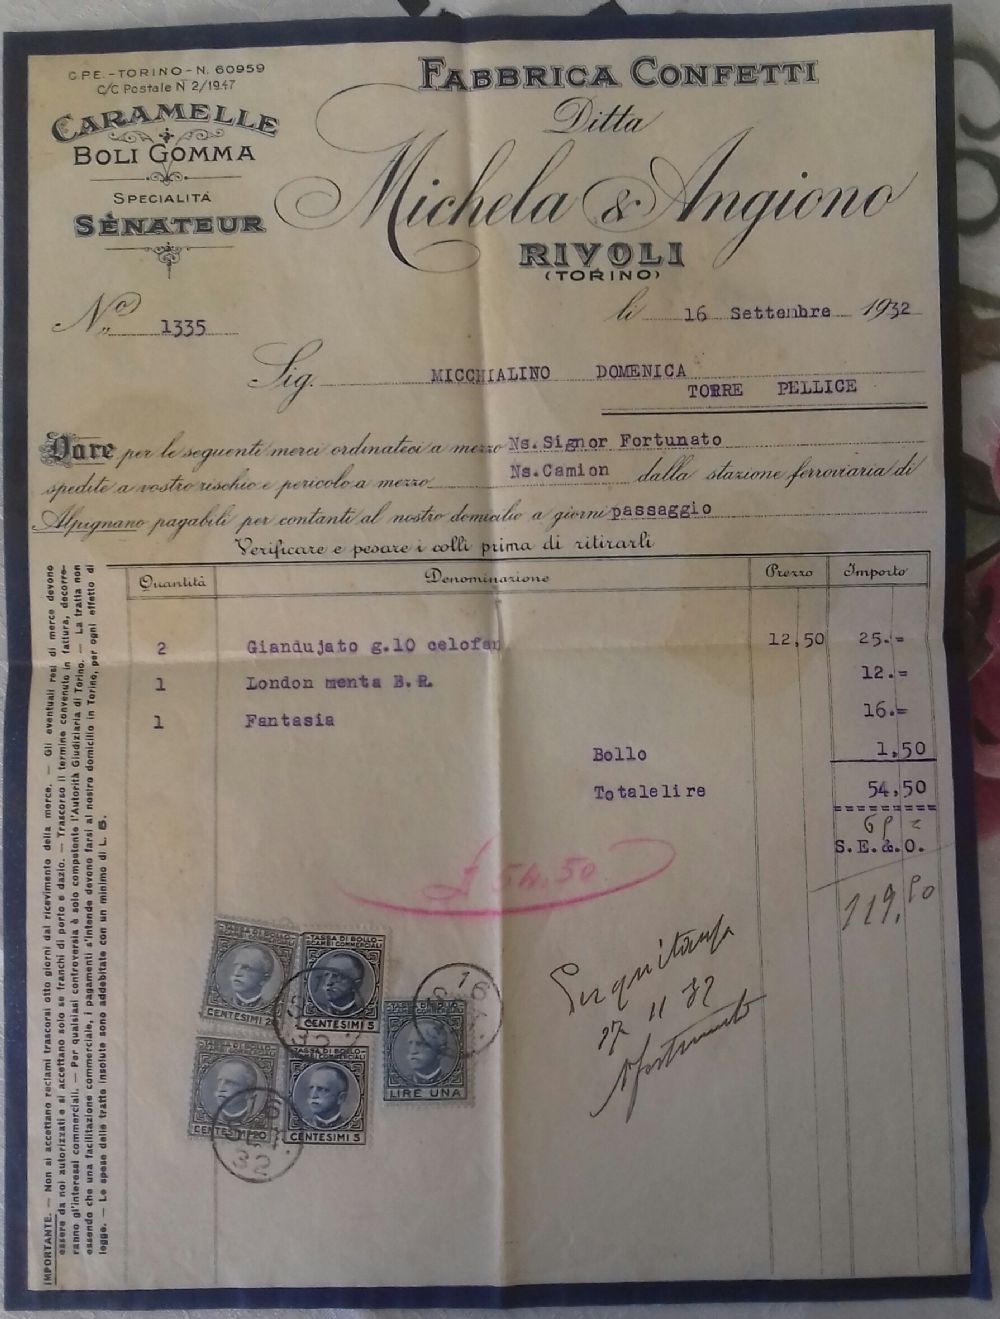 C.P.E. - TORINO - N. 60959
C/C Postale N 2/1947
CARAMELLE
BOLI GOMMA
SPECIALITÁ
SÈNATEUR
FABBRICA CONFETTI
Ditta
Michela & Angiono
RIVOLI
(TORINO)
No 1335
li 16 Settembre 1932
Sig. MICCHIALINO DOMENICA
TORRE PELLICE
Dare per le seguenti merci ordinateci a mezzo Ns.Signor Fortunato
spedite a vostro rischio e pericolo a mezzo Ns.Camion dalla stazione ferroviaria di
Alpignano pagabili per contanti al nostro domicilio a giorni passaggio
Verificare e pesare i colli prima di ritirarli
Quantità Denominazione Prezzo Importo
2 Giandujato g.10 celofan 12,50 25.=
1 London menta B.R. 12.=
1 Fantasia 16.=
Bollo 1,50
Totalelire 54,50
S.E.&.O.
£ 54.50
119,50
17 11 32
TASSA DI BOLLO
SCAMBI COMMERCIALI
CENTESIMI
TASSA DI BOLLO
SCAMBI COMMERCIALI
CENTESIMI 5
LIRE UNA
CENTESIMI 20
TASSA DI BOLLO
SCAMBI COMMERCIALI
CENTESIMI 5
16
32
16
32
IMPORTANTE. — Non si accettano reclami trascorsi otto giorni dal ricevimento della merce. — Gli eventuali resi di merce devono
essere da noi autorizzati e si accettano solo se franchi di porto e dazio. — Trascorso il termine convenuto in fattura, decorre-
ranno gl'interessi commerciali. — Per qualsiasi controversia è solo competente l'Autorità Giudiziaria di Torino. — La tratta non
essendo che una facilitazione commerciale, i pagamenti s'intende devono farsi al nostro domicilio in Torino, per ogni effetto di
legge. — Le spese delle tratte insolute sono addebitate con un minimo di L. 5.